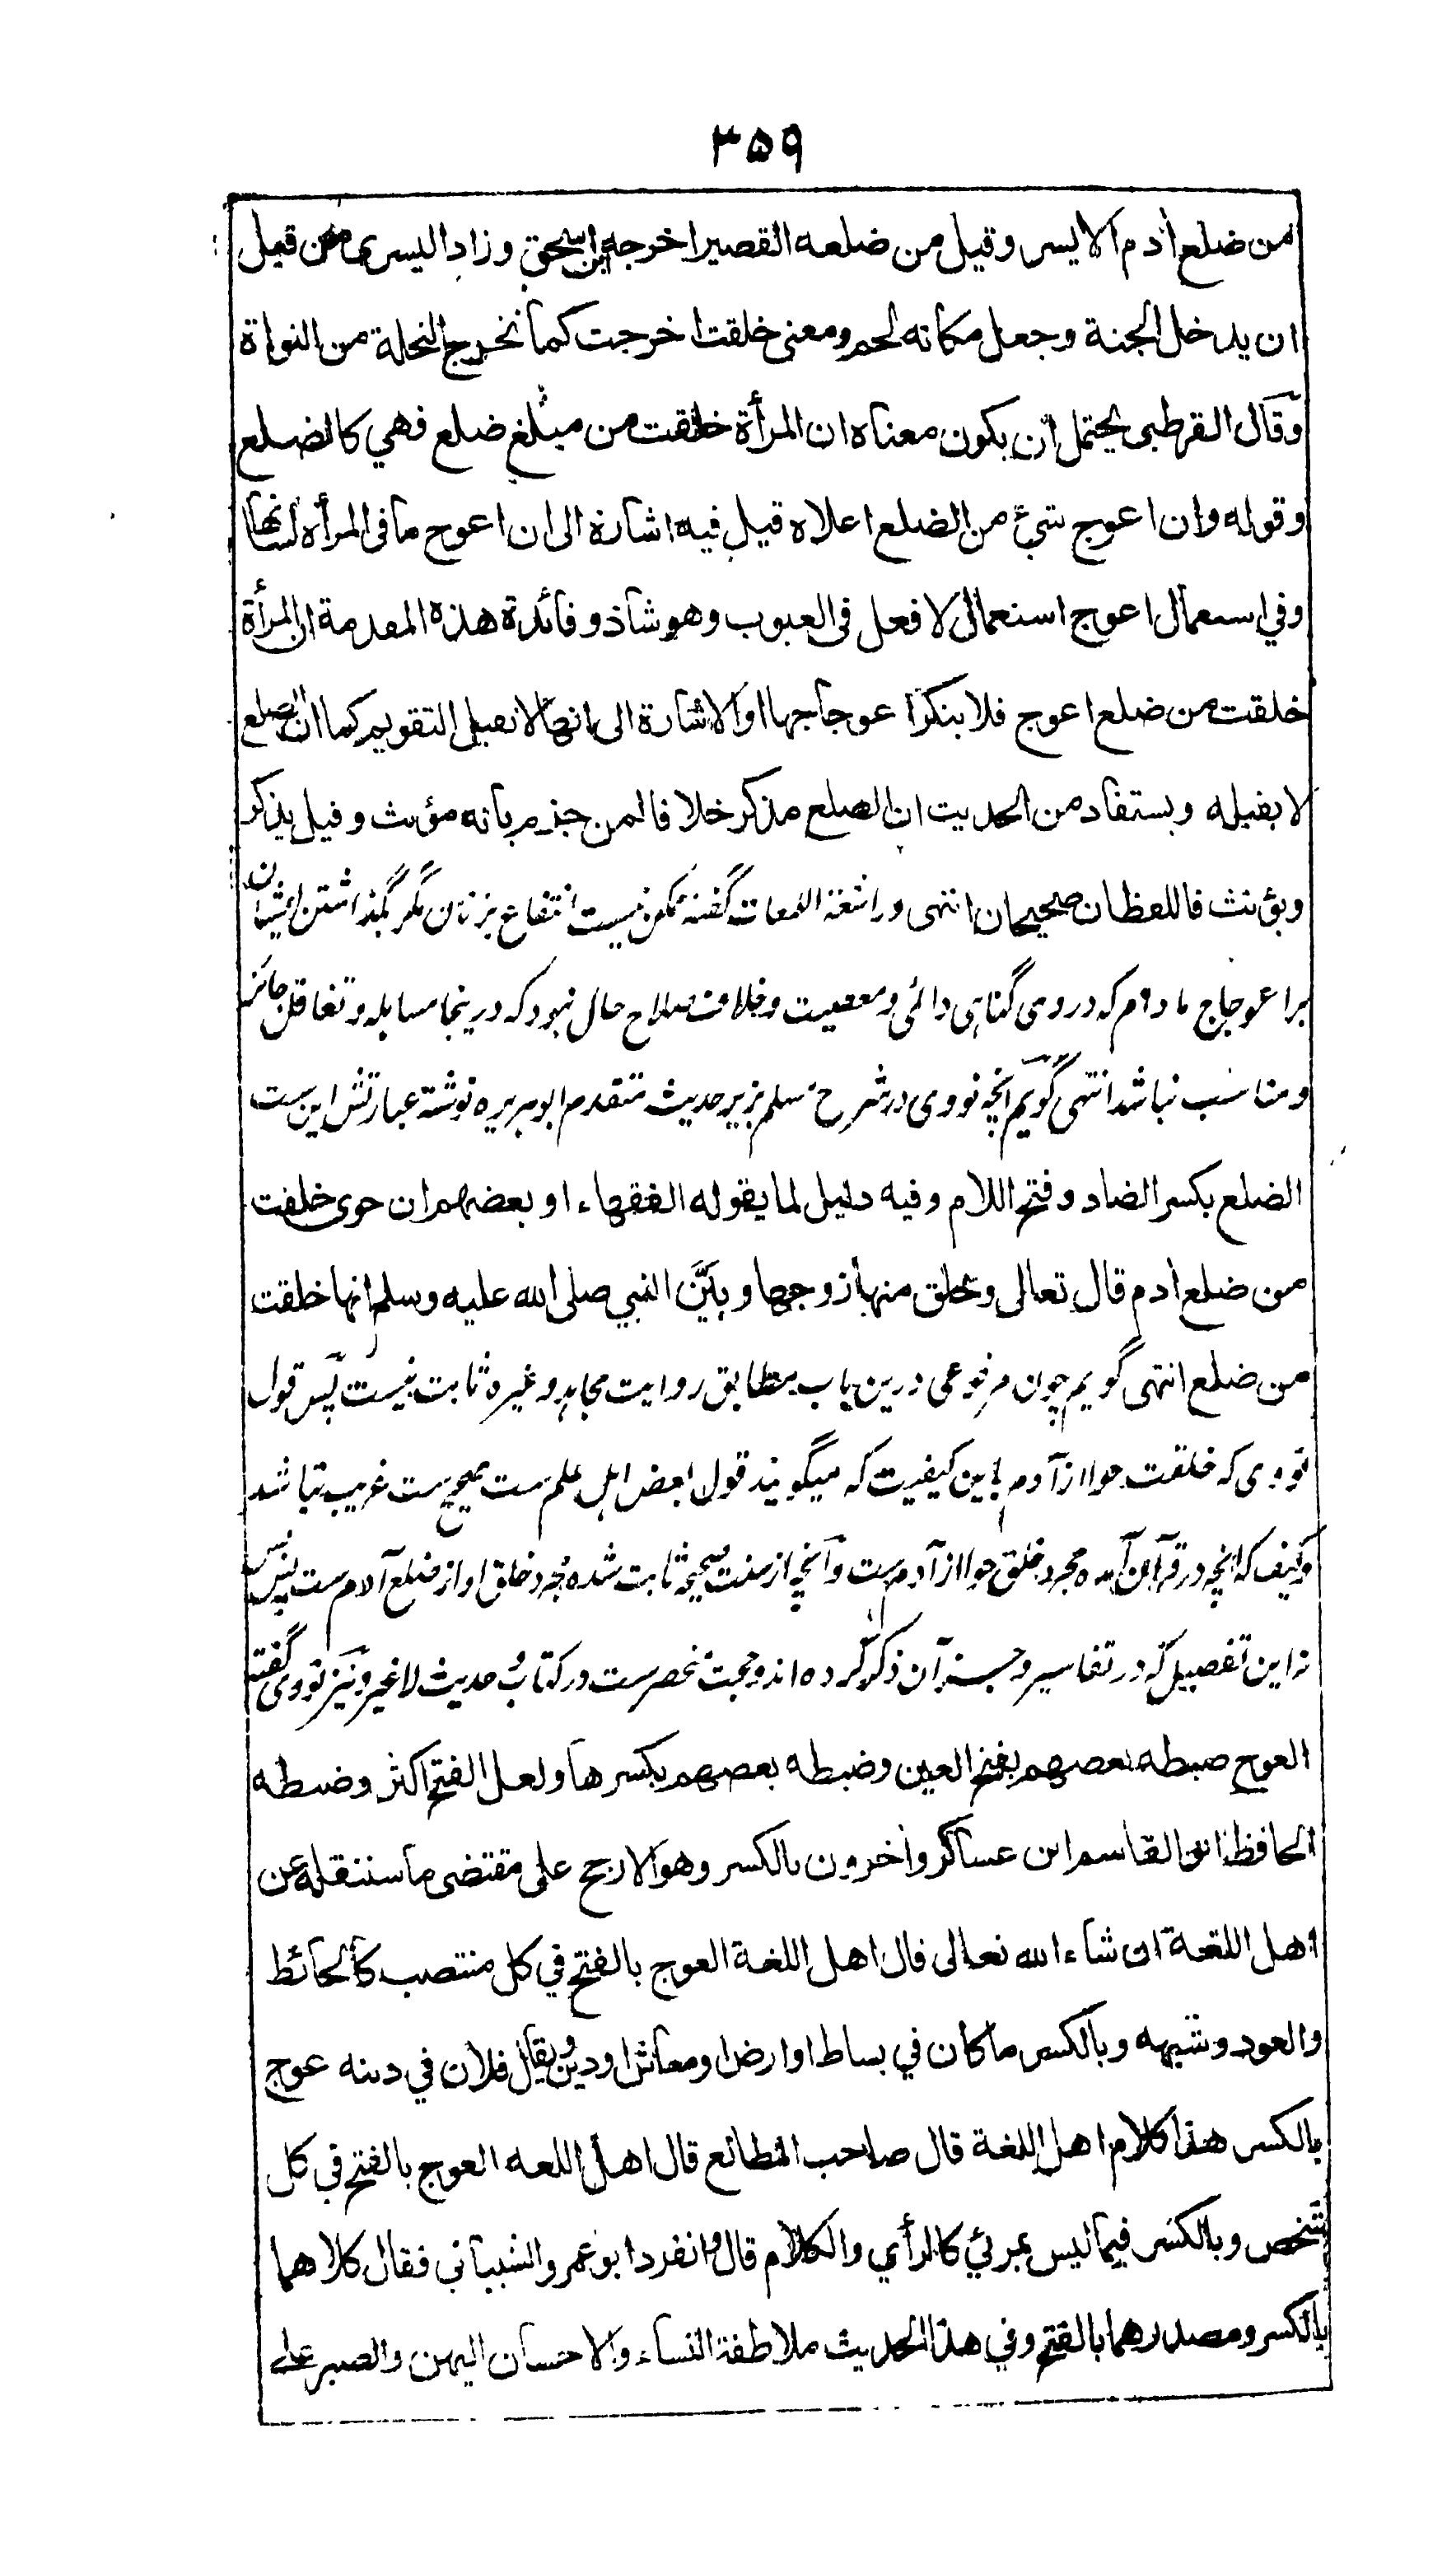 ۳۵۹
من ضلع أدم الايسر وقيل من ضلعه القصير اخرجه ابن اسحق وزاد اليسرى من قبل
ان يدخل الجنة وجعل مكانه لحم ومعنى خلقت اخرجت كما تخرج النخلة من النواة
وقال القرطبى يحتمل ان يكون معناه ان المرأة خلقت من مبلغ ضلع فهي كالضلع
وقوله وان اعوج شئ من الضلع اعلاه قيل فيه اشارة الى ان اعوج ما فى المرأة لسانها
وفي استعمال اعوج استعمال لافعل فى العيوب وهو شاذ وفائدة هذه المقدمة ان المرأة
خلقت من ضلع اعوج فلا ينكر اعوجاجها او الاشارة الى انها لا تقبل التقويم كما ان الضلع
لا يقبله ويستفاد من الحديث ان الضلع مذكر خلافا لمن جزم بانه مؤنث وقيل يذكر
ويؤنث فاللفظان صحيحان انتهى و در اشعة اللمعات گفته ممکن نیست انتفاع بزنان مگر بگذاشتن ایشان
بر اعوجاج مادام که در وی گناهی دائمی و معصیت و خلاف صلاح حال نبود که درینجا مساهله و تغافل جائز
و مناسب نباشد انتهى گویم آنچه نووی در شرح مسلم بزیر حدیث متقدم ابو هریره نوشته عبارتش این ست
الضلع بكسر الضاد وفتح اللام وفيه دليل لما يقوله الفقهاء او بعضهم ان حوى خلقت
من ضلع أدم قال تعالى وخلق منها زوجها وبيَّن النبي صلى الله عليه وسلم انها خلقت
من ضلع انتهى گویم چون مرفوعی درین باب مطابق روایت مجاهد و غیره ثابت نیست پس قول
نووی که خلقت حوا از آدم باین کیفیت که میگویند قول بعض اهل علم ست صحیح ست غریب نباشد
و کیف که آنچه در قرآن آمده مجرد خلق حوا از آدم ست و آنچه از سنت صحیحه ثابت شده مجرد خلق او از ضلع آدم ست پس
نه این تفصیل که در تفاسیر و جز آن ذکر کرده اند و حجت منحصر ست در کتاب و حدیث لا غیر و نیز نووی گفته
العوج ضبطه بعضهم بفتح العين وضبطه بعضهم بكسرها ولعل الفتح اكثر وضبطه
الحافظ ابو القاسم ابن عساكر وأخرون بالكسر وهو الارجح على مقتضى ما سننقله عن
اهل اللغة ان شاء الله تعالى قال اهل اللغة العوج بالفتح في كل منتصب كالحائط
والعود وشبهه وبالكسر ما كان في بساط او ارض او معاش او دين ويقال فلان في دينه عوج
بالكسر هذا كلام اهل اللغة قال صاحب المطالع قال اهل اللغه العوج بالفتح في كل
شخص وبالكسر فيما ليس بمرئي كالرأي والكلام قال وانفرد ابو عمرو الشيباني فقال كلاهما
بالكسر ومصدرهما بالفتح وفي هذا الحديث ملاطفة النساء والاحسان اليهن والصبر على